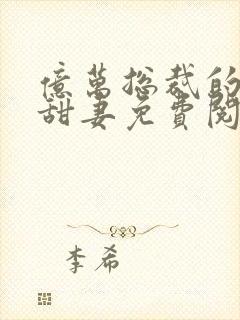 億萬總裁的
甜妻免費閱
李希